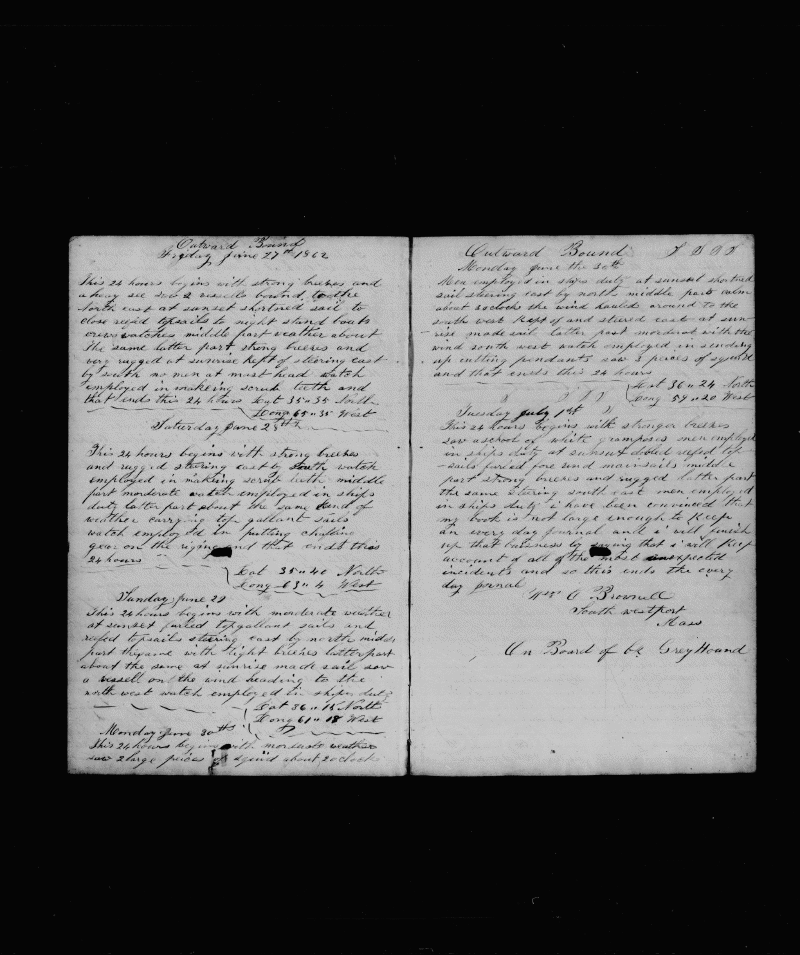 Outward Bound
Friday June 27th 1862
This 24 hours begins with strong breezes and
a heavy see saw 2 vissells bound to the
North east at sunset shortned sail to
close reefd topsails to night stand boats
crew watches middle part weather about
the same latter part strong breezes and
very rugged at sunrise kept of steering east
by south no men at mast head watch
employed in makeing scrub teeth and
that ends this 24 hours Lat 35 " 35 North
Long 65 " 35 West
Saturday June 28th
This 24 hours begins with strong breezes
and rugged steering east by south watch
employed in making scrub teeth middle
part morderate watch employed in ships
duty latter part about the same kind of
weather carrying top gallant sails
watch employed in putting chafing
gear on the riging and that ends this
24 hours
Lat 35 " 40 North
Long 63 " 4 West
Sunday June 29
This 24 hours begins with morderate weather
at sunset furled topgallant sails and
reefed topsails steering east by north middle
part the same with light breezes latter part
about the same at sunrise made sail saw
a vissell on the wind heading to the
north west watch employed in ships duty
Lat 36 " 15 North
Long 61 " 18 West
Monday June 30th
This 24 hours begins with morderate weather
saw 2 large peices of squid about 2 oclock
Outward Bound
Monday June the 30th
Men employed in ships duty at sunset shortned
sail steering east by north middle part calm
about 3 oclock the wind hauled around to the
south west kept of and steered east at sun-
rise made sail latter part morderat with the
wind south west watch employed in sending
up cutting pendants saw 3 peices of squid
and that ends this 24 hours
Lat 36 " 24 North
Long 59 " 20 West
Tuesday July 1st
This 24 hours begins with stronger breezes
saw a school of white grampuses men employed
in ships duty at sunset dobled reefed top
-sails furled fore and mainsails middle
part strong breezes and rugged latter part
the same steering south east men employed
in ships duty i have been convinced that
my book is not large enough to keep
an every day journal and i will finish
up that buisness by saying that i will keep
account of all of the most unexpected
incidents and so this ends the every
day jornal
Wm A Brownell
South westport
Mass
On Board of bk GreyHound